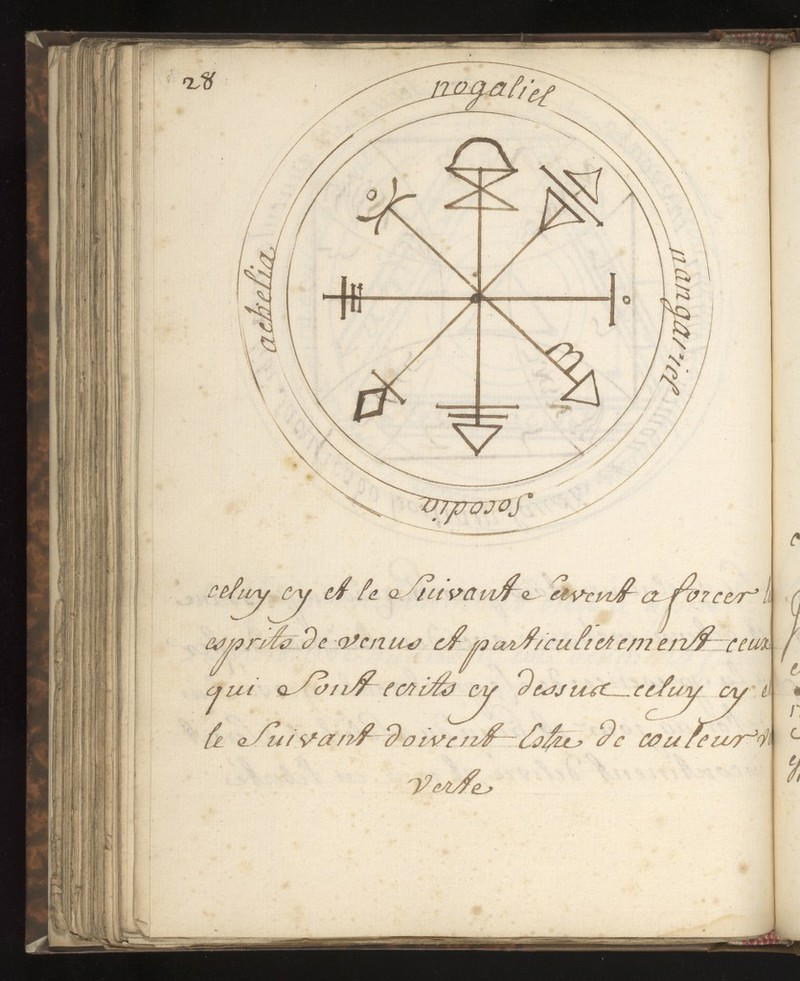 28
nogaliel
nangariel
socodia
achelia
celuy cy et le suivant servent a forcer
esprits de venus et particulierement ceux
qui sont ecrits cy dessus celuy cy
le suivant doivent Estre de couleur
verte